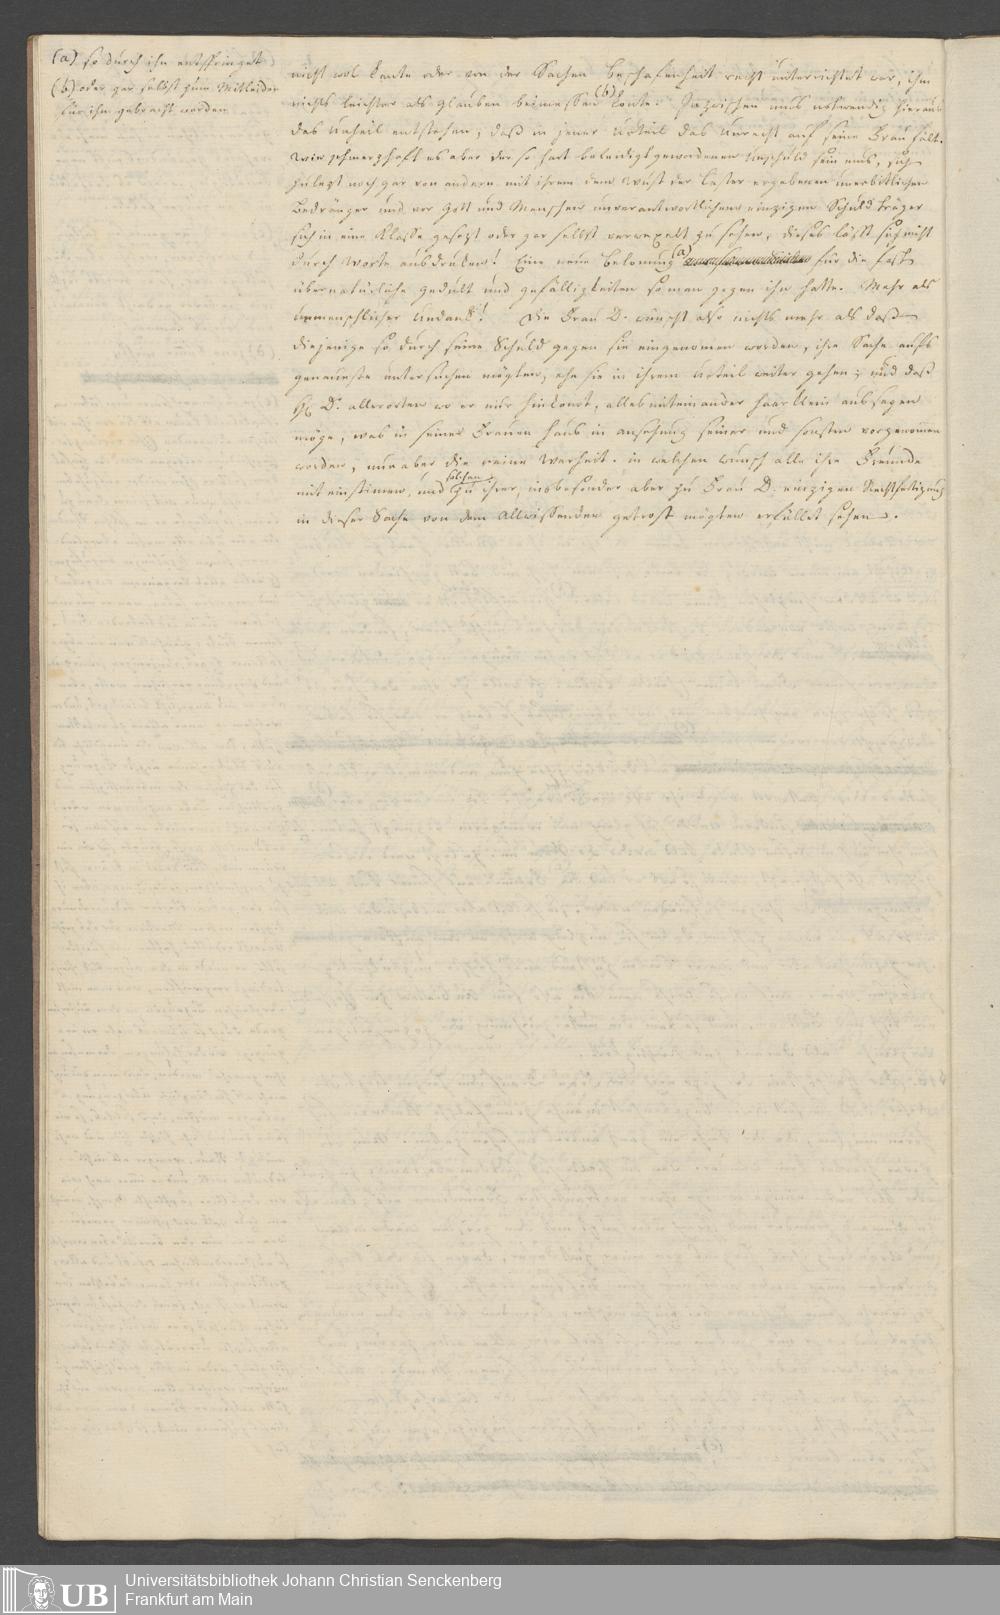 (a) so durch ihn entspringet
(b) oder gar selbst zum Mitleiden
für ihn gebracht worden
nicht wol kente oder von der Sachen beschafenheit recht unterrichtet war, ihm
nichts leichter als glauben beimessen (b) konte. Inzwischen mus nohtwendig hieraus
das Unheil entstehen, daß in jener Urteil das Unrecht auf seine Frau fält.
Wie schmerzhaft es aber der so hart beleidigt gewordenen Unschuld sein mus, sich
zulezt noch gar von andern mit ihrem dem Wust der Laster ergebenen unerbittlichen
Bedränger und vor Gott und Menschen unverantwortlichen einzigen Schuld träger
sich in eine Klasse gesezt oder gar selbst verwexelt zu sehen, dieses läßt sich nicht
durch Worte ausdruken! Eine neue belonung (a) für die fast
übernatürliche gedult und gefälligkeiten so man gegen ihn hatte. Mehr als
unmenschlicher Undank! Die Frau D. wünscht also nichts mehr als daß
diejenige so durch seine Schuld gegen sie eingenomen worden, ihre Sache aufs
genaueste untersuchen mögten, ehe sie in ihrem Urteil weiter gehen; und daß
H. D. allerorten wo er nur hinkomt, alles miteinander haarklein aussagen
möge, was in seiner Frauen Haus in ansehung seiner und sonsten vorgenommen
worden, nur aber die reine Warheit. in welchen wunsch alle ihre Freunde
mit einstimen, und solchen zu ihrer, insbesonder aber zu Frau D. einzigen Rechtfertigung
in dieser Sache von dem Allwissenden getrost mögten erfüllet sehen.
Universitätsbibliothek Johann Christian Senckenberg
Frankfurt am Main
UB